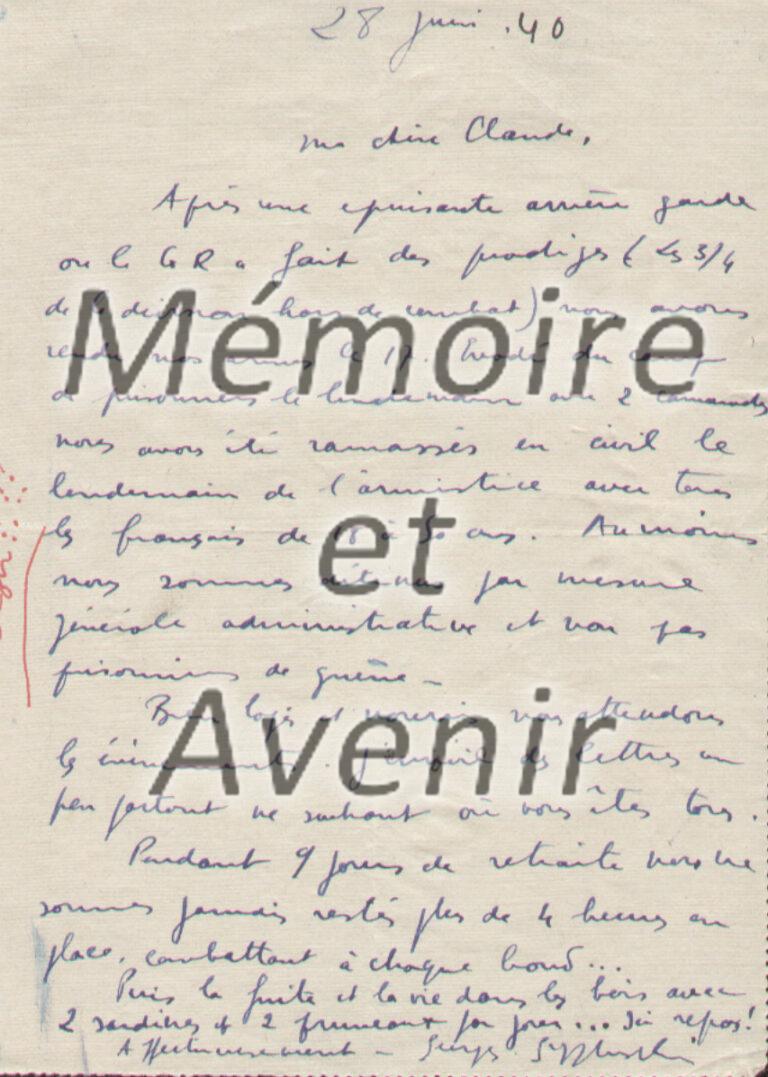 28 juin .40
ma chère Claude,
Après une épuisante arrière garde
où le GR a fait des prodiges (les 3/4
de la division hors de combat) nous avons
rendu nos armes le 17. Evadé du camp
de prisonniers le lendemain avec 2 camarades
nous avons été ramassés en civil le
lendemain de l'armistice avec tous
les français de 18 à 50 ans. Au moins
nous sommes détenus par mesure
générale administrative et non pas
prisonniers de guerre -
Bien logés et nourris nous attendons
les évènements. J'envoie des lettres un
peu partout ne sachant où vous êtes tous.
Pendant 9 jours de retraite nous ne
sommes jamais restés plus de 4 heures en
place, combattant à chaque bond...
Puis la fuite et la vie dans les bois avec
2 sardines et 2 pruneaux par jour... Ici repos!
Affectueusement - Georges
Mémoire
et
Avenir